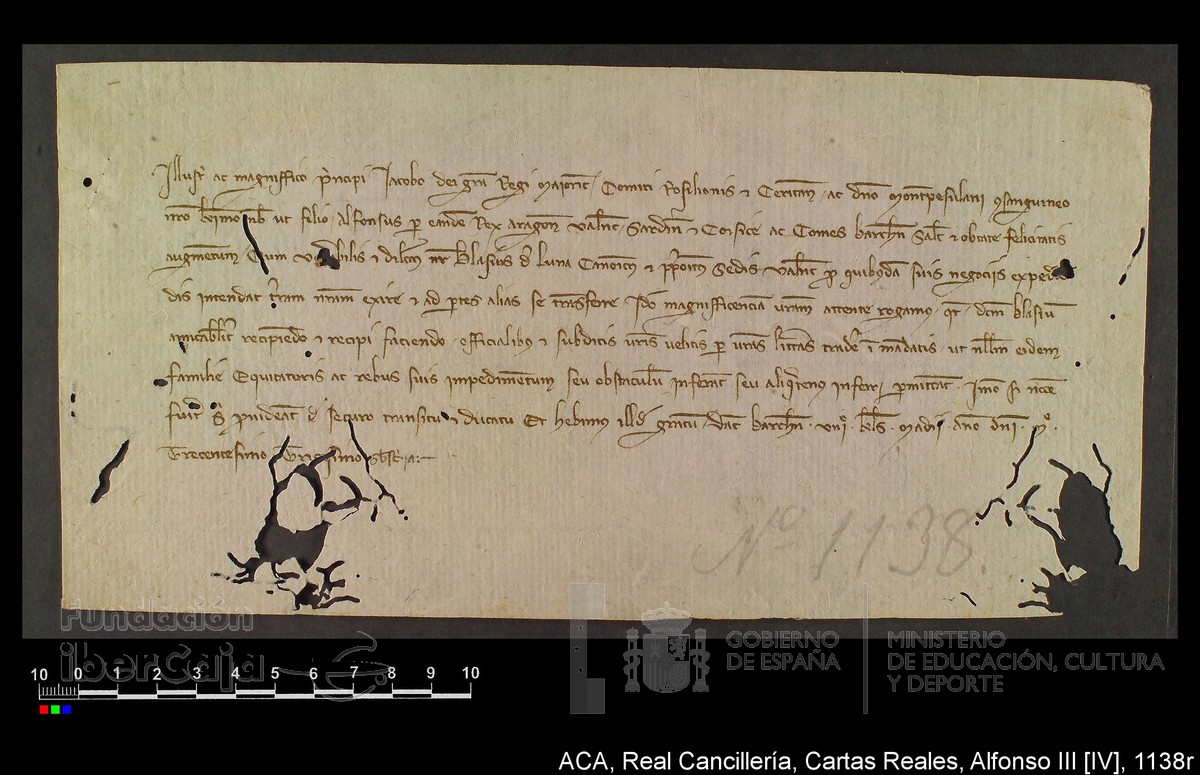 Illustri ac magniffico principi Jacobo dei gra Regi Maioric Comiti Rosilionis et Ceritan ac dno Montpesulani consanguineo
nro krimo nob ut filio Alfonsus per eande Rex aragon Valnc Sardin et Corsice ac Comes barchn Salt et obtate felicitatis
augmentum Cum et dilcus nr Blasius de luna Canonicus et ppositus Sedis Valnt pro quibusda suis negociis expedi
dis intendat tram nram exire et ad partes alias se transferre Ido magnifficencia vram attente rogamus qt dcm blasiu
amicabiliter recipiendo et recipi faciendo officialibus et subditis vris velitis per vras litteras tradere in mandatis ut nllm eidem
familie Equitaturis ac rebus suis impedimentum seu obstaculu inferant seu aliqtenus inferri permittant Imo si necce
fuerit sibi prouideant de securo transitu et ducatu Et hebimus illud gratum Dat barchn kls madii ano dni mo
Trecentesimo Tricesimo
Nº 1138
Fundación
iberCaja
GOBIERNO
DE ESPAÑA
MINISTERIO
DE EDUCACIÓN, CULTURA
Y DEPORTE
10 0 1 2 3 4 5 6 7 8 9 10
ACA, Real Cancillería, Cartas Reales, Alfonso III [IV], 1138r